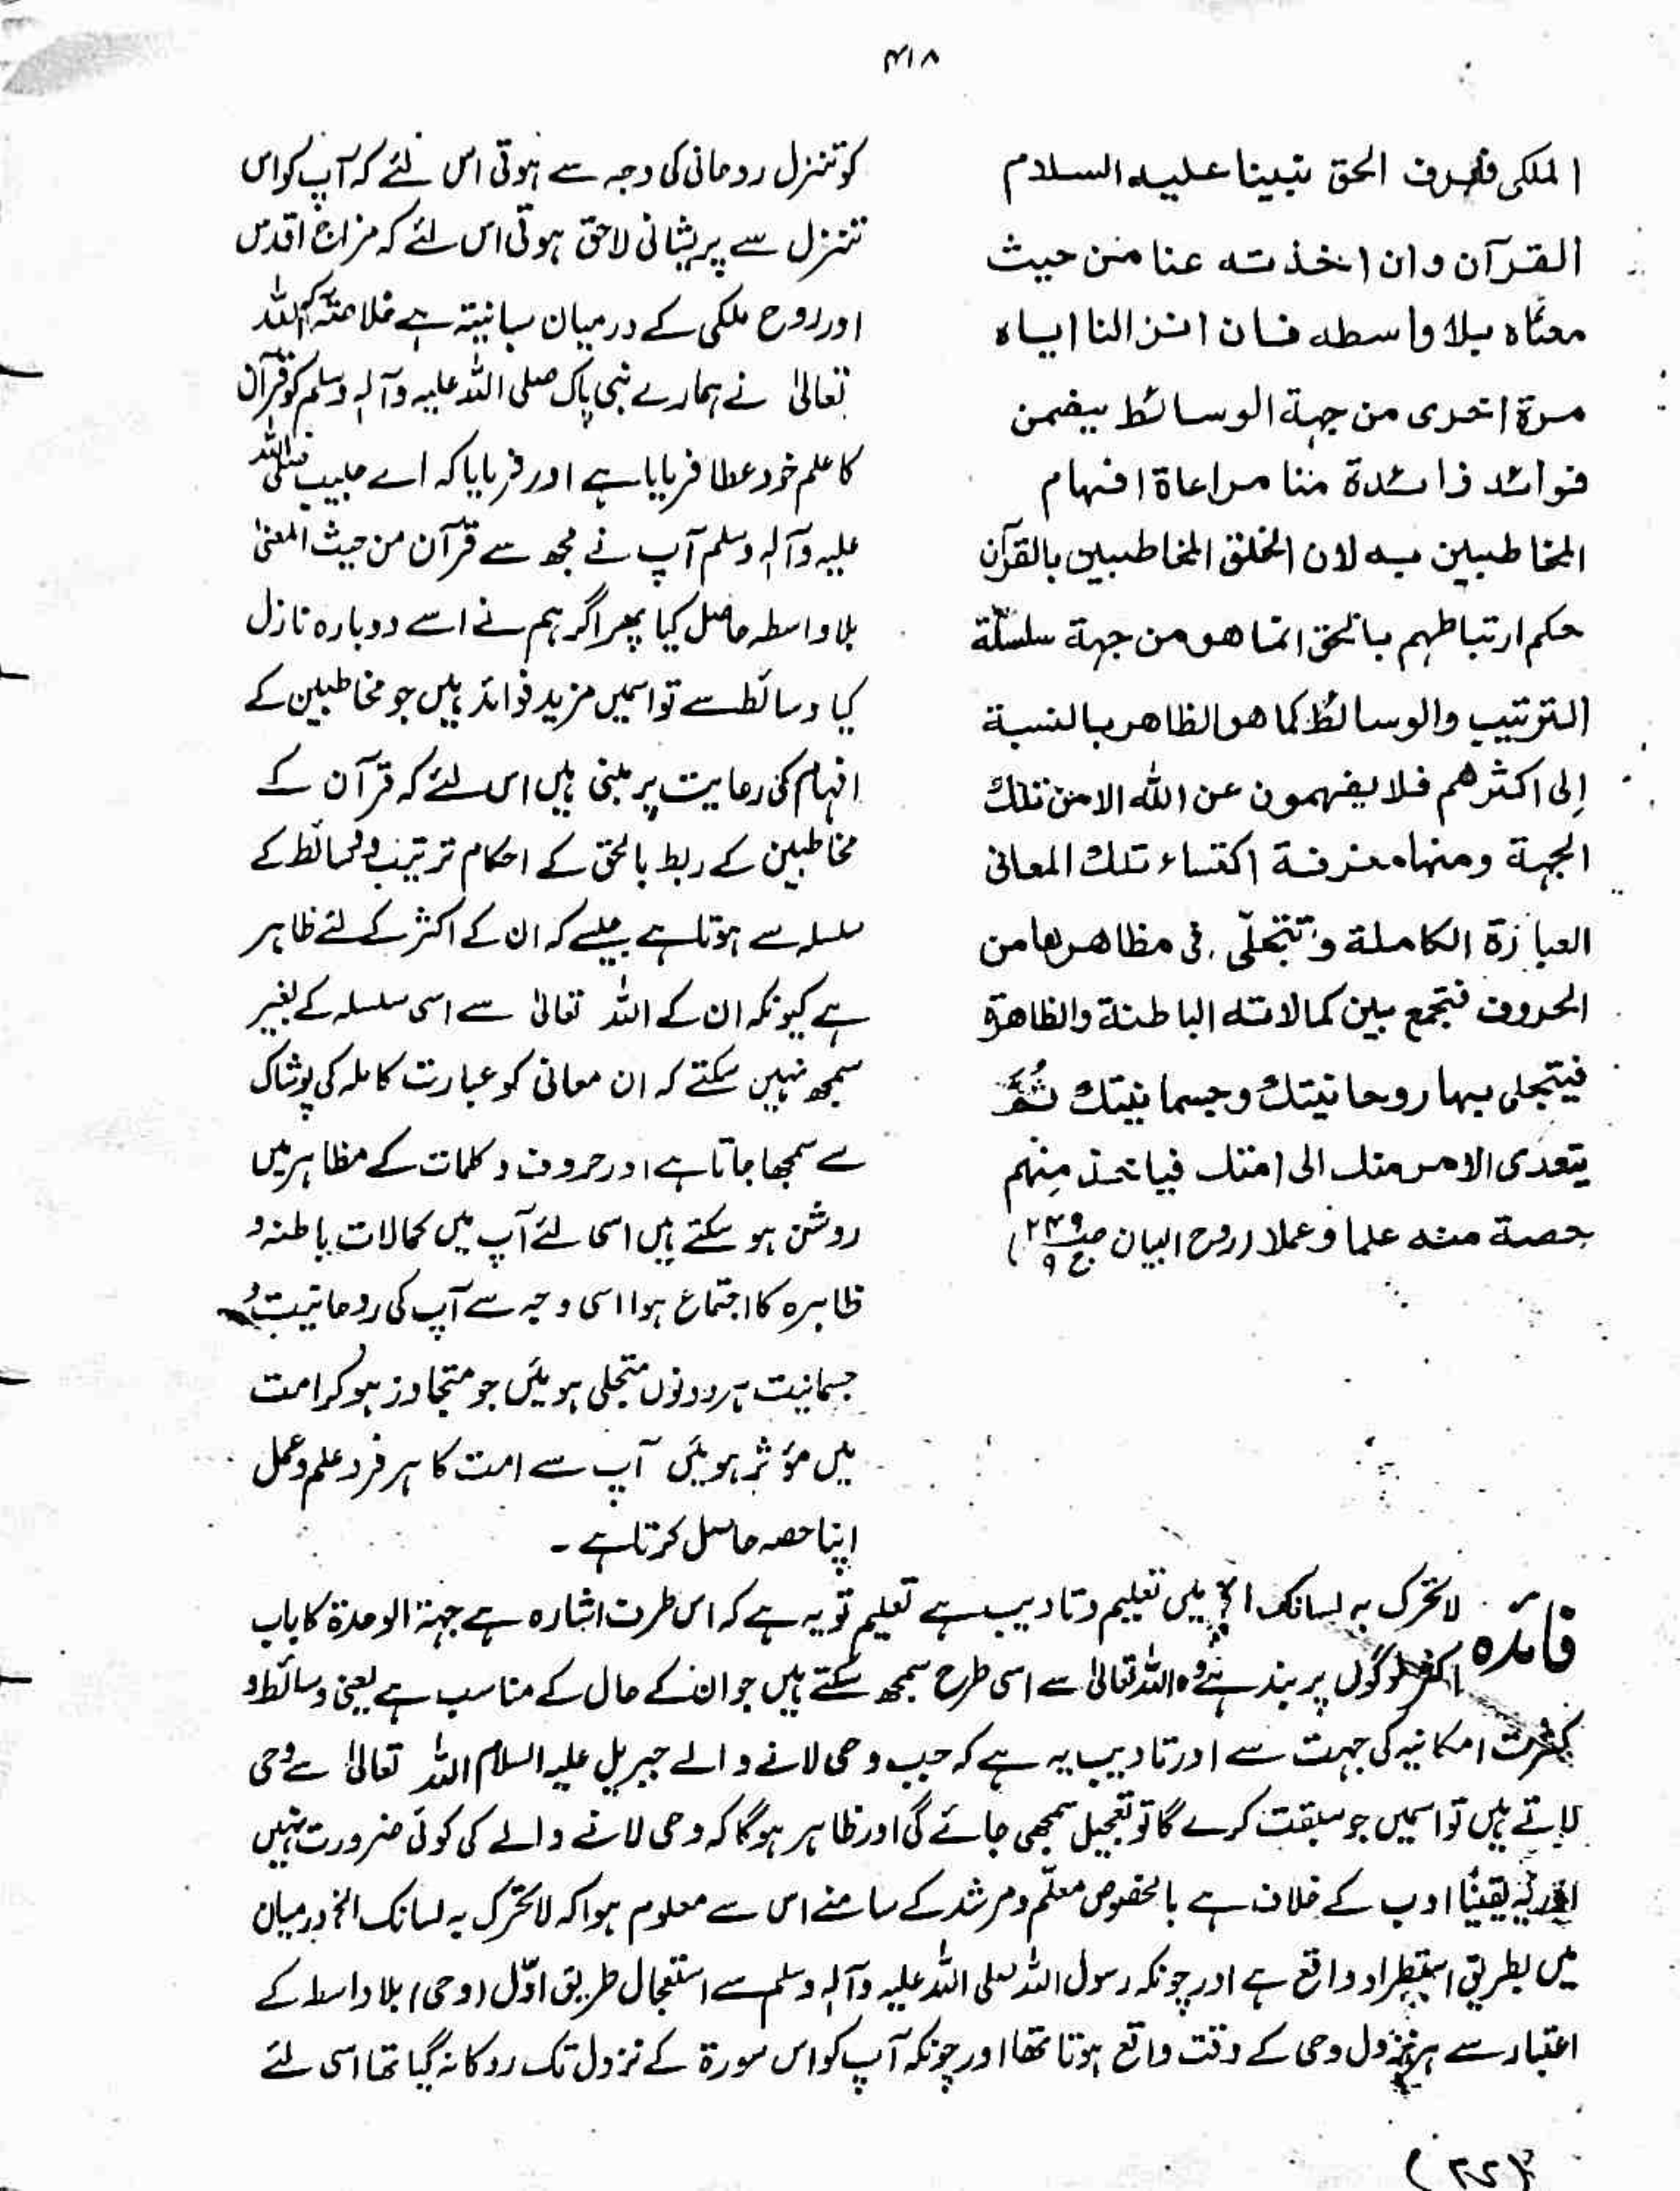 ۴۱۸
الملکی فعرف الحق نبینا علیہ السلام
القرآن وان اخذتہ عنا من حیث
معناہ بلا واسطہ فان انزالنا ایاہ
مرۃ اخری من جہۃ الوسائط یضمن
فوائد زائدۃ منا مراعاۃ افہام
المخاطبین بہ لان الخلق المخاطبین بالقرآن
حکم ارتباطہم بالحق انما ھو من جہۃ سلسلۃ
الترتیب والوسائط کما ھو الظاھر بالنسبۃ
إلی اکثرھم فلا یفہمون عن اللہ الا من تلک
الجہۃ ومنہا معرفۃ اکتساء تلک المعانی
العبارۃ الکاملۃ وتتجلّی فی مظاھرھا من
الحروف فتجمع بین کمالاتہ الباطنۃ والظاھرۃ
فیتجلی بہا روحانیتک وجسمانیتک ثُمَّ
یتعدی الامر منک الی امتک فیاخذ منہم
حصۃ منہ علما وعملا (روح البیان ص۲۴۹ ج۹)
کو تنزل روحانی کی وجہ سے ہوتی اس لئے کہ آپ کو اس
تنزل سے پریشانی لاحق ہوتی اس لئے کہ مزاج اقدس
اور روح ملکی کے درمیان مبانیتہ ہے خلاصہ کہ اللہ
تعالیٰ نے ہمارے نبی پاک صلی اللہ علیہ وآلہ وسلم کو قرآن
کا علم خود عطا فرمایا ہے اور فرمایا کہ اے حبیب صلی اللہ
علیہ وآلہ وسلم آپ نے مجھ سے قرآن من حیث المعنیٰ
بلا واسطہ حاصل کیا پھر اگر ہم نے اسے دوبارہ نازل
کیا وسائط سے تو اسمیں مزید فوائد ہیں جو مخاطبین کے
افہام کی رعایت پر مبنی ہیں اس لئے کہ قرآن کے
مخاطبین کے ربط بالحق کے احکام ترتیب و وسائط کے
سلسلہ سے ہوتا ہے جیسے کہ ان کے اکثر کے لئے ظاہر
ہے کیونکہ ان کے اللہ تعالیٰ سے اسی سلسلہ کے بغیر
سمجھ نہیں سکتے کہ ان معانی کو عبارت کاملہ کی پوشاک
سے سمجھا جاتا ہے اور حروف و کلمات کے مظاہر میں
روشن ہو سکتے ہیں اسی لئے آپ میں کمالات باطنہ و
ظاہرہ کا اجتماع ہوا اسی وجہ سے آپ کی روحانیت و
جسمانیت ہر دونوں متجلی ہوئیں جو متجاوز ہو کر امت
میں مؤثر ہوئیں آپ سے امت کا ہر فرد علم و عمل
اپنا حصہ حاصل کرتا ہے ۔
فائدہ لاتحرک بہ لسانک الخ میں تعلیم و تادیب ہے تعلیم تو یہ ہے کہ اس طرف اشارہ ہے جہۃ الوحدۃ کا باب
اکثر لوگوں پر بند ہے وہ اللہ تعالیٰ سے اسی طرح سمجھ سکتے ہیں جو ان کے حال کے مناسب ہے یعنی وسائط و
کثرت امکانیہ کی جہت سے اور تادیب یہ ہے کہ جب وحی لانے والے جبریل علیہ السلام اللہ تعالیٰ سے وحی
لاتے ہیں تو اسمیں جو سبقت کرے گا تو تعجیل سمجھی جائے گی اور ظاہر ہوگا کہ وحی لانے والے کی کوئی ضرورت نہیں
اور یہ یقینًا ادب کے خلاف ہے بالخصوص معلّم و مرشد کے سامنے اس سے معلوم ہوا کہ لاتحرک بہ لسانک الخ درمیان
میں بطریق استطراد واقع ہے اور چونکہ رسول اللہ صلی اللہ علیہ وآلہ وسلم سے استعجال طریق اوّل (وحی) بلا واسطہ کے
اعتبار سے ہر نزول وحی کے وقت واقع ہوتا تھا اور چونکہ آپ کو اس سورۃ کے نزول تک روکا نہ گیا تھا اسی لئے